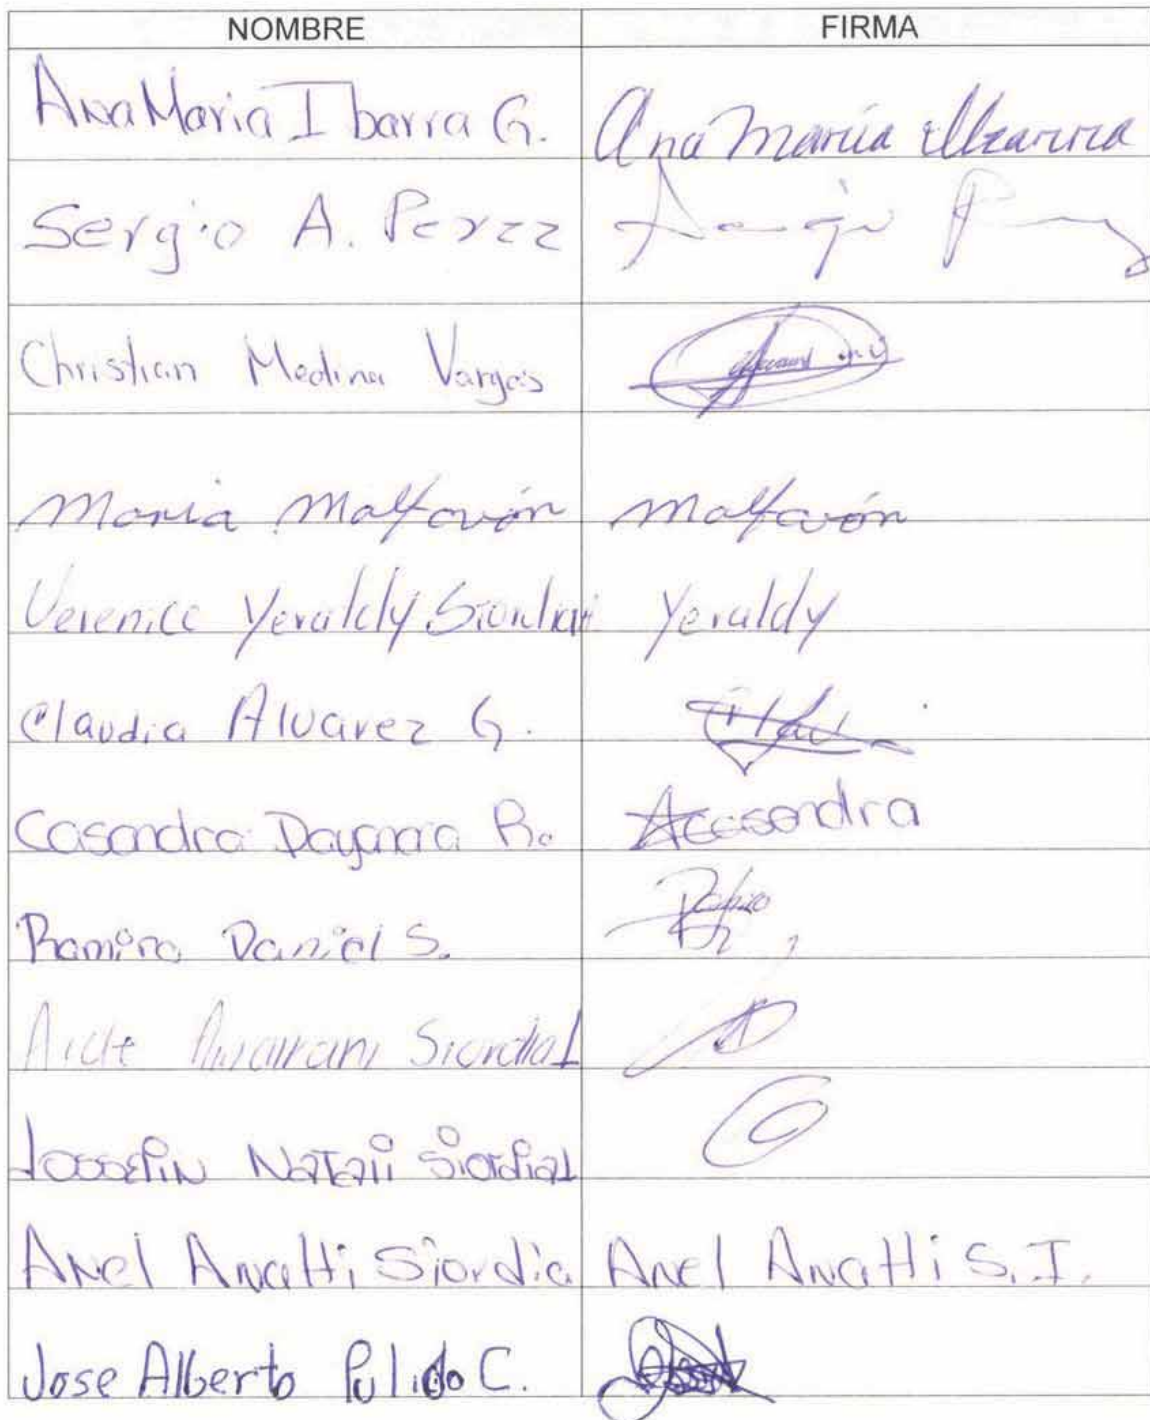 NOMBRE FIRMA
Ana Maria Ibarra G. Ana María Ibarra
Sergio A. Perez
Christian Medina Vargas
Maria Malfavón Malfavón
Verenice Yeraldy Yeraldy
Claudia Alvarez G.
Casandra Dayanara R.
Ramiro Daniel S.
Siordia I
Natali Siordia I
Anel Anatti Siordia Anel Anatti S. I.
Jose Alberto Pulido C.